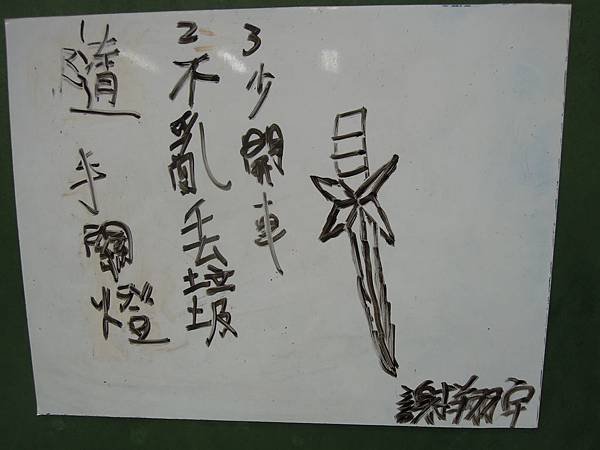 1隨手關燈
2不亂丟垃圾
3少開車
謝翔宇